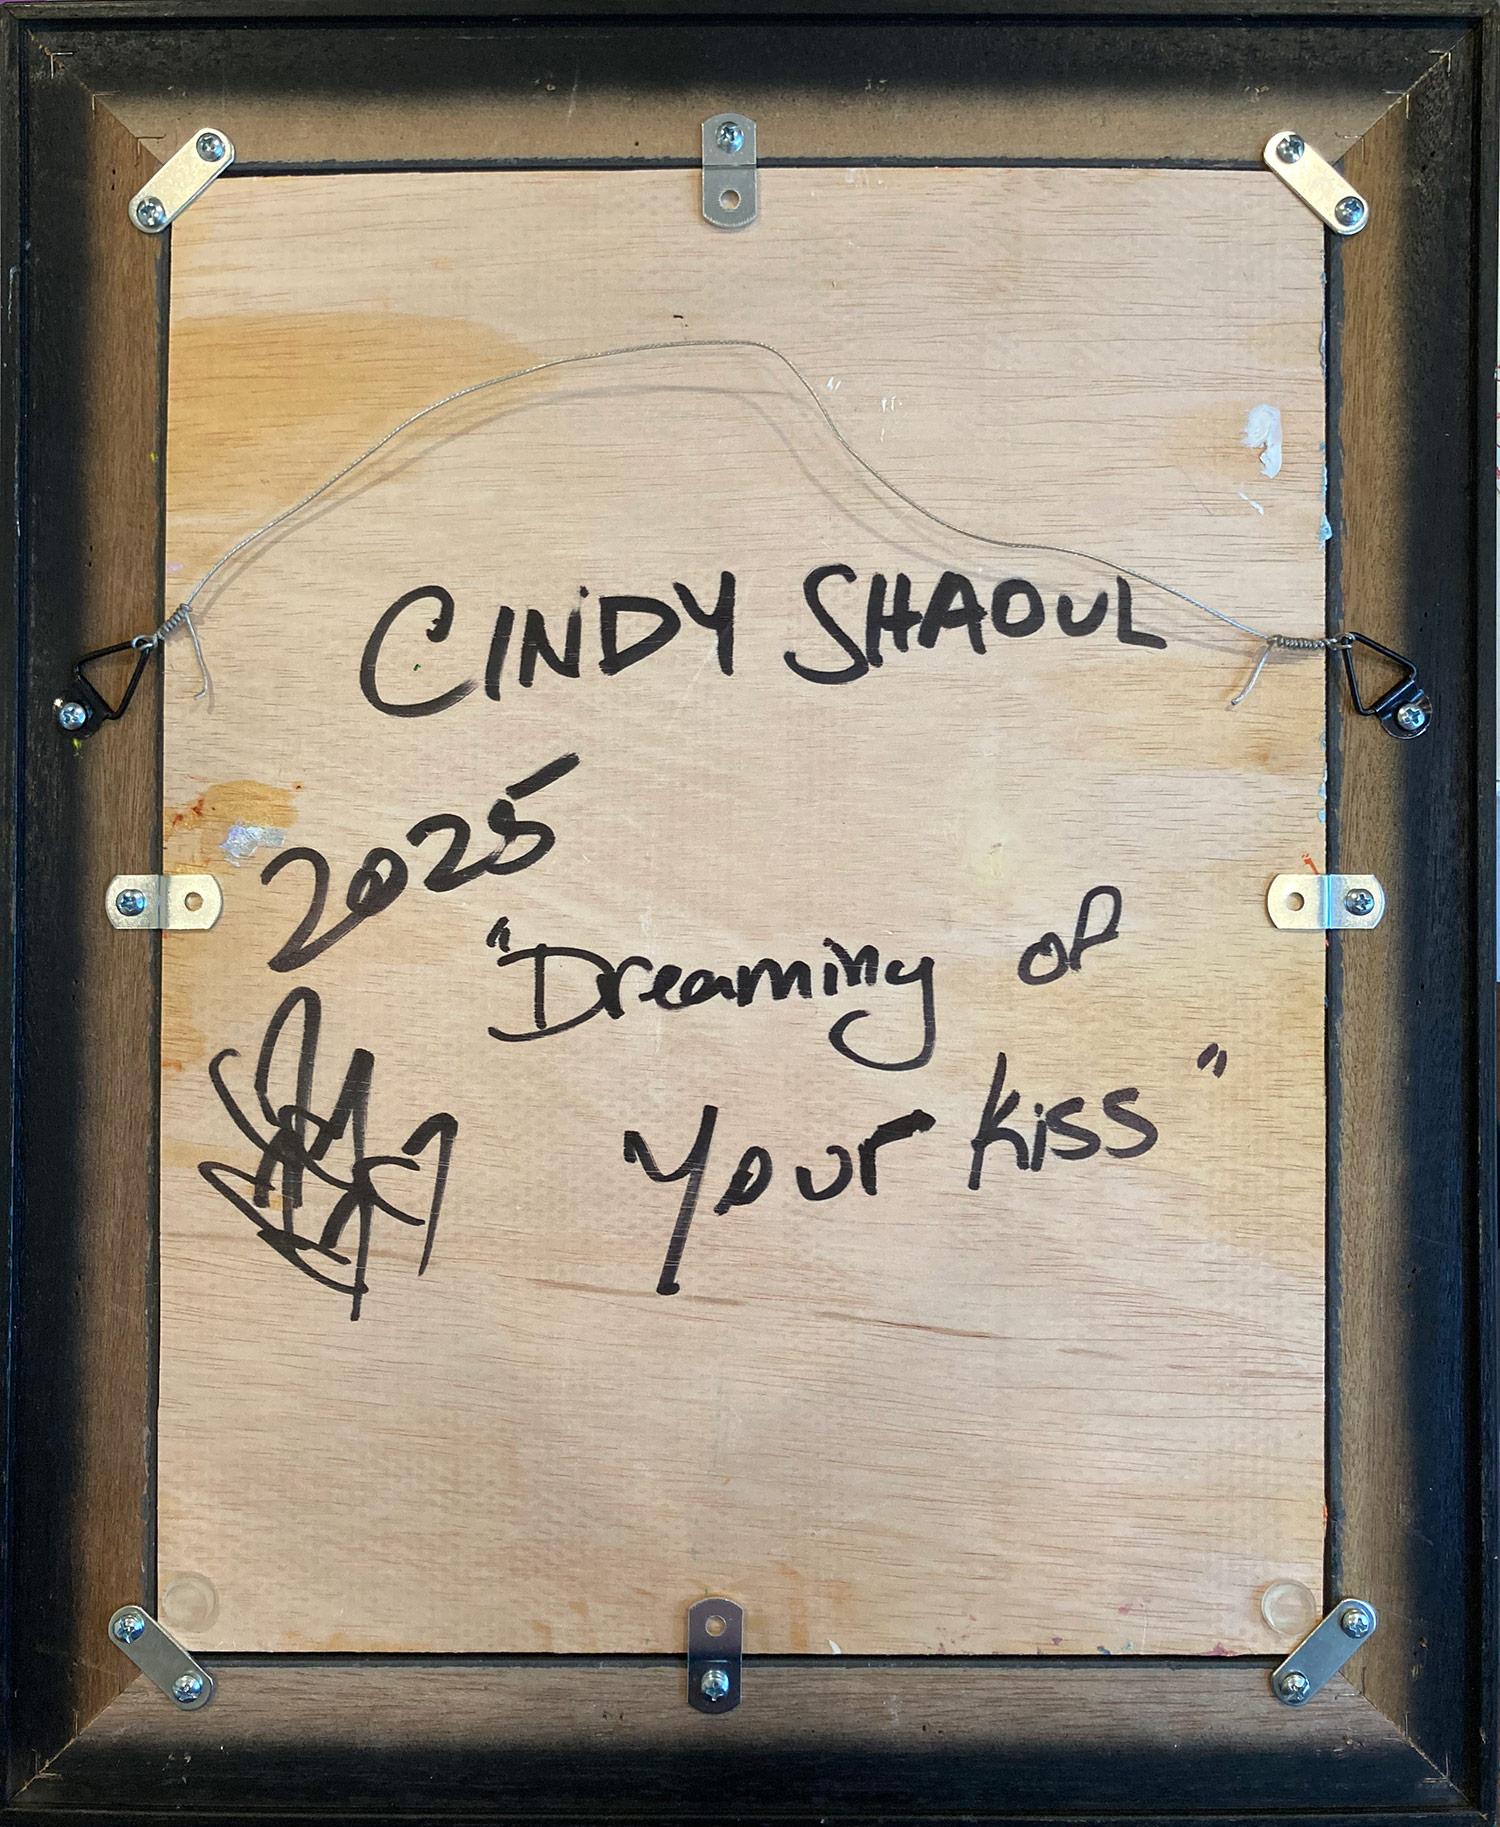 CINDY SHAOUL
2025
"Dreaming of
Your Kiss"